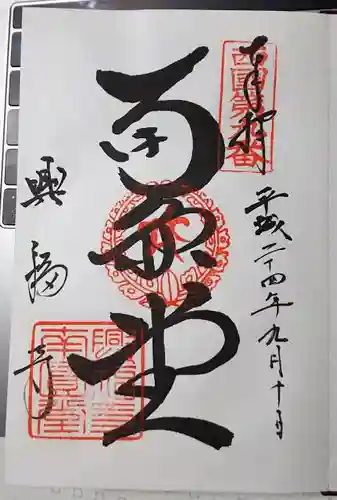 奉拝
西国第九番
平成二十四年九月十日
南圓堂
興福寺
興福寺
南圓堂